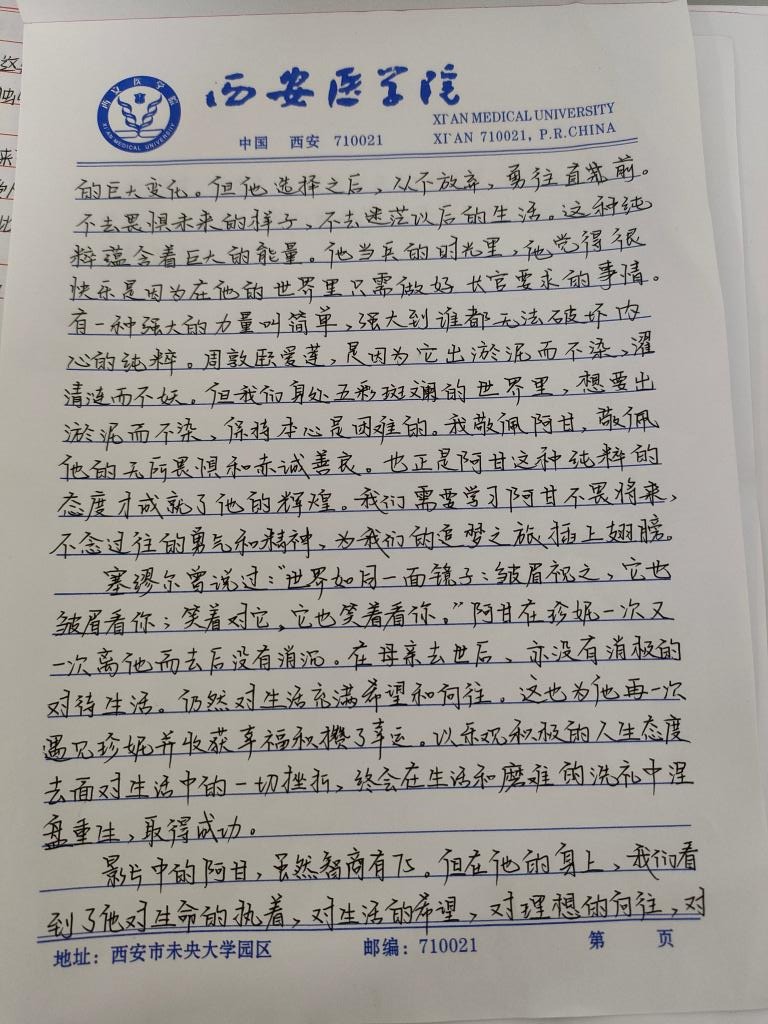 西安医学院
XI'AN MEDICAL UNIVERSITY
中国 西安 710021
XI'AN 710021, P.R.CHINA
的巨大变化。但他选择之后，从不放弃，勇往直前。
不去畏惧未来的样子，不去迷茫以后的生活。这种纯
粹蕴含着巨大的能量。他当兵的时光里，他觉得很
快乐是因为在他的世界里只需做好长官要求的事情。
有一种强大的力量叫简单，强大到谁都无法破坏内
心的纯粹。周敦颐爱莲，是因为它出淤泥而不染，濯
清涟而不妖。但我们身处五彩斑斓的世界里，想要出
淤泥而不染，保持本心是困难的。我敬佩阿甘，敬佩
他的无所畏惧和赤诚善良。也正是阿甘这种纯粹的
态度才成就了他的辉煌。我们需要学习阿甘不畏将来，
不念过往的勇气和精神，为我们的追梦之旅插上翅膀。
塞缪尔曾说过：“世界如同一面镜子：皱眉视之，它也
皱眉看你；笑着对它，它也笑着看你。”阿甘在珍妮一次又
一次离他而去后没有消沉。在母亲去世后，亦没有消极的
对待生活。仍然对生活充满希望和向往。这也为他再一次
遇见珍妮并收获幸福积攒了幸运。以乐观和积极的人生态度
去面对生活中的一切挫折，终会在生活和磨难的洗礼中涅
盘重生，取得成功。
影片中的阿甘，虽然智商有75。但在他的身上，我们看
到了他对生命的执着，对生活的希望，对理想的向往，对
地址：西安市未央大学园区 邮编：710021 第 页